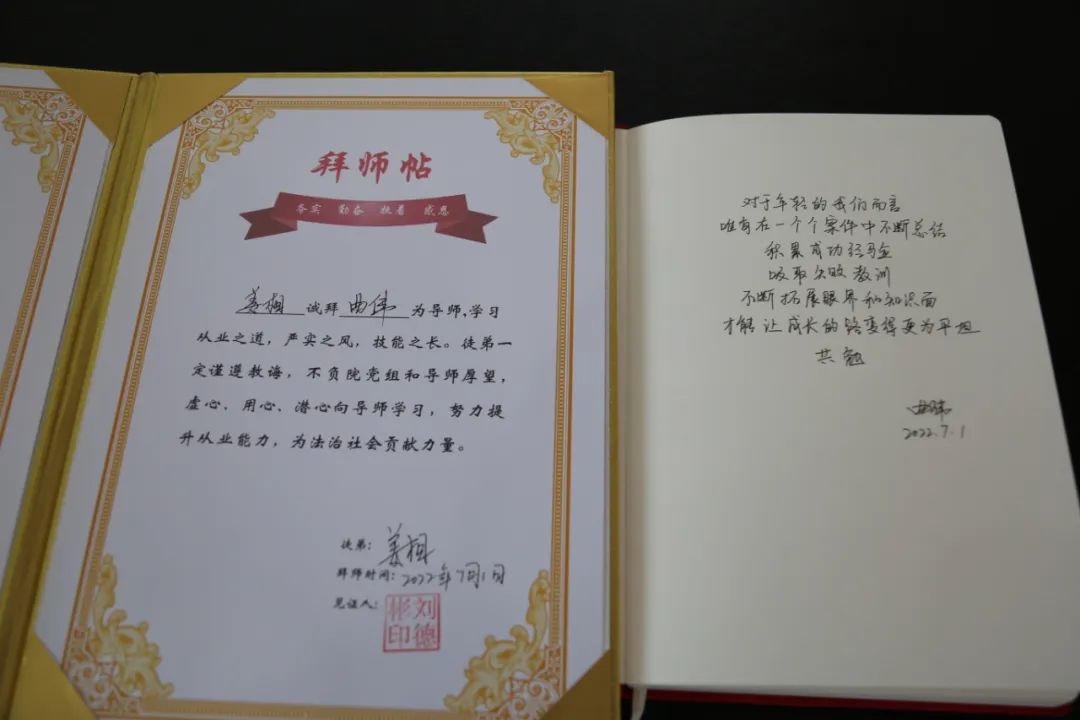 拜师帖
务实 勤奋 执着 感恩
姜楠 试拜 曲伟 为导师,学习
从业之道，严实之风，技能之长。徒第一
定谨遵教诲，不负院党组和导师厚望，
虚心、用心、潜心向导师学习，努力提
升从业能力，为法治社会贡献力量。
徒第：姜楠
拜师时间：2022年7月1日
见证人：刘德彬印
对于年轻的我们而言
唯有在一个个案件中不断总结
积累成功经验
吸取失败教训
不断拓展眼界和知识面
才能让成长的路变得更为平坦
共勉
曲伟
2022.7.1